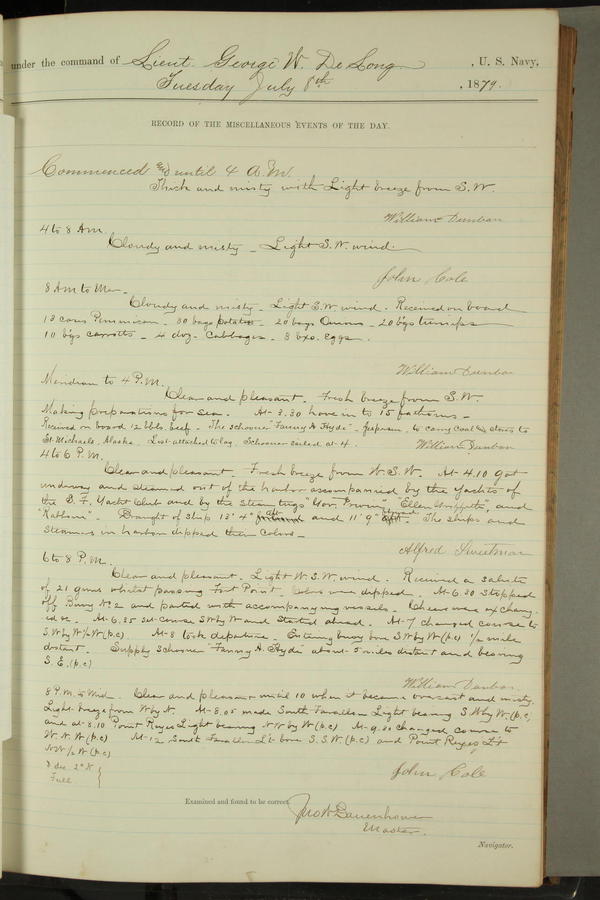 under the command of Lieut. George W. De Long, U. S. Navy,
Tuesday July 8th, 1879.
RECORD OF THE MISCELLANEOUS EVENTS OF THE DAY.
Commenced and until 4 A.M.
Thick and misty with Light breeze from S.W.
William Dunbar
4 to 8 A.M.
Cloudy and misty - Light S.W. wind.
John Cole
8 A.M to Mer -
Cloudy and misty - Light S.W. wind. Received on board
13 cases Pemmican - 30 bags potatoes - 20 bags Onions - 20 bgs turnips
10 bgs carrotts - 4 doz. Cabbages - 3 bxs. eggs.
William Dunbar
Meridian to 4 P.M.
Clear and pleasant. Fresh breeze from S.W.
Making preparations for sea. At 3.30 hove in to 15 fathoms -
Received on board 12 bbls. beef - The schooner "Fanny A. Hyde" - to carry coal & stores to
St. Michaels, Alaska. List attached to log. Schooner sailed at 4.
William Dunbar
4 to 6 P.M.
Clear and pleasant. Fresh breeze from W.S.W. At 4.10 got
underway and steamed out of the harbor accompanied by the yachts of
the S. F. Yacht Club and by the steam tugs "Gov. Irwin", "Ellen Griffiths", and
"Rathom". Draught of Ship 13' 4" aft and 11' 9" forward. The ships and
steamers in harbor dipped their colors -
Alfred Sweetman
6 to 8 P.M.
Clear and pleasant. Light W.S.W. wind. Received a salute
of 21 guns whilst passing Fort Point. Colors were dipped. At 6.20 Stopped
off Buoy No. 2 and parted with accompanying vessels. Cheers were exchang-
ed &c. At 6.25 set course S W by W and Started ahead. At 7 changed course to
S W by W 1/2 W (p.c). At 8 took departure. Entering buoy bore S W by W (p.c) 1/2 mile
distant. Supply Schooner "Fanny A. Hyde" about 5 miles distant and bearing
S. E. (p.c)
William Dunbar.
8 P.M. to Mid. Clear and pleasant until 10 when it became overcast and misty.
Light breeze from W by N. At 8.05 made South Farallon Light bearing S W by W. (p.c)
and at 8.10 Point Reyes Light bearing N W by W (p.c) At 9.20 changed course to
W. N. W (p.c) At 12 South Farallon L't bore S. S. W. (p.c) and Point Reyes L't
N W 1/2 W (p.c)
Full
John Cole
Examined and found to be correct.
Jno W Danenhower
Master.
Navigator.